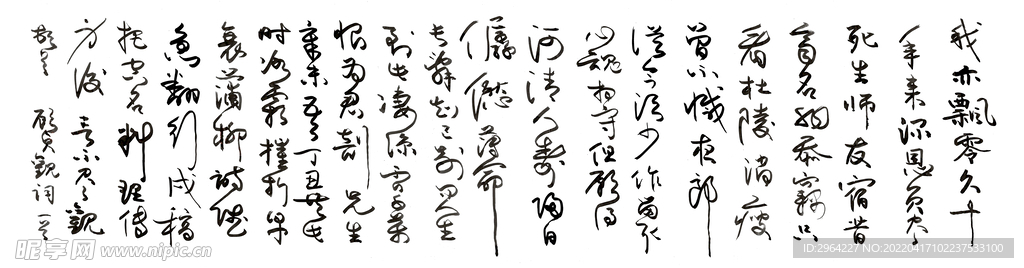 我亦飄零久十
年来深恩負尽
死生师友宿昔
齐名非忝窃只
看杜陵消瘦
曾不减夜郎
從今須少作留取
心魂相守但願得
河清人壽归日
僝僽薄命
长辞知己别问人生
到此凄凉否千萬
恨为君剖兄生
辛未吾丁丑共此
时冰霜摧折早
衰蒲柳詩賦
急翻行戍稿
把空名料理傳
身後言不尽觀
頓首 顾贞觀詞一首
昵享网 www.nipic.cn
ID:2964227 NO:20220417102237533100